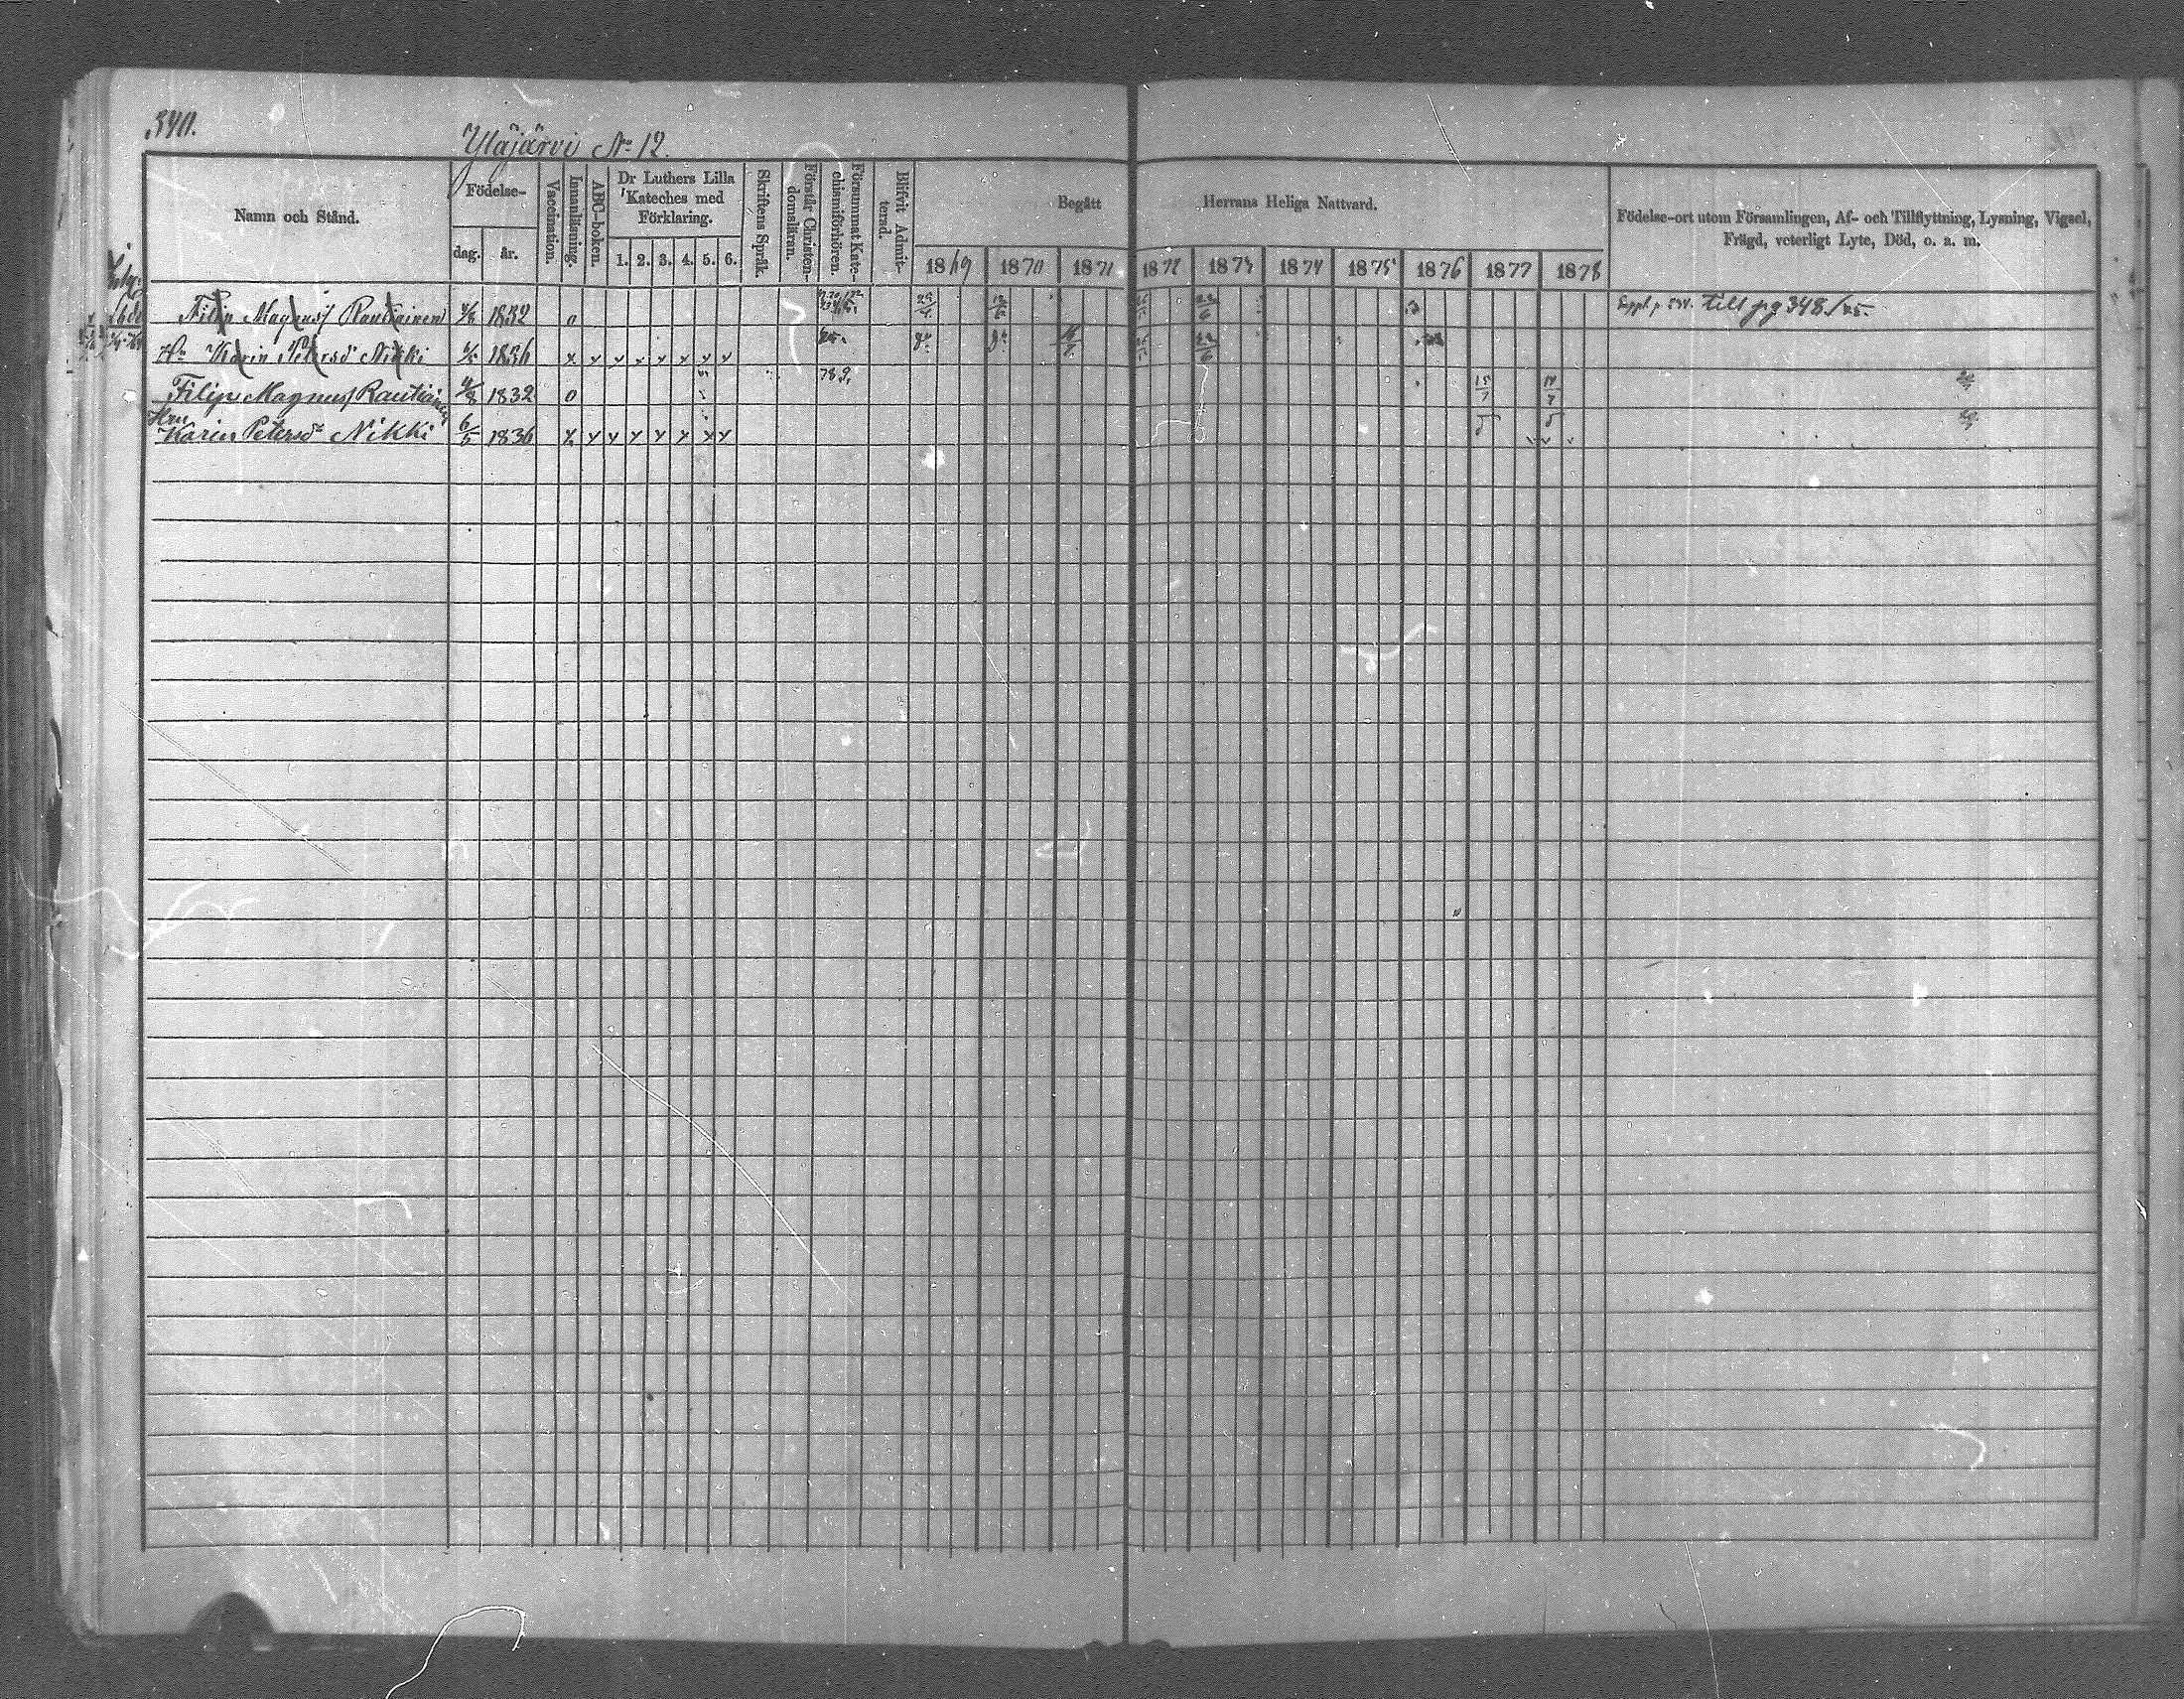 340.
Yläjärvi No 12.
Namn och Stånd.
Födelse-
dag.
år.
Vaccination.
Innanläsning.
ABC-boken.
Dr Luthers Lilla
Kateches med
Förklaring.
1. 2. 3. 4. 5. 6.
Skriftens Språk.
Förstår Christen-
domsläran.
Försummat Kate-
chismiförhören.
Blifvit Admit-
terad.
Begått Herrans Heliga Nattvard.
1869 1870 1871 1872 1873 1874 1875 1876 1877 1878
Födelse-ort utom Församlingen, Af- och Tillflyttning, Lysning, Vigsel,
Frägd, veterligt Lyte, Död, o. a. m.
Filip Magnus Rautiainen 4/8 1832 o till pg 348
Hu Karin Petersd Nikki 6/5 1836 x v v v v v v v
Filip Magnus Rautiainen 4/8 1832 o 15/7 14/7
Hru
Karin Petersdr Nikki 6/5 1836 x v v v v v v v